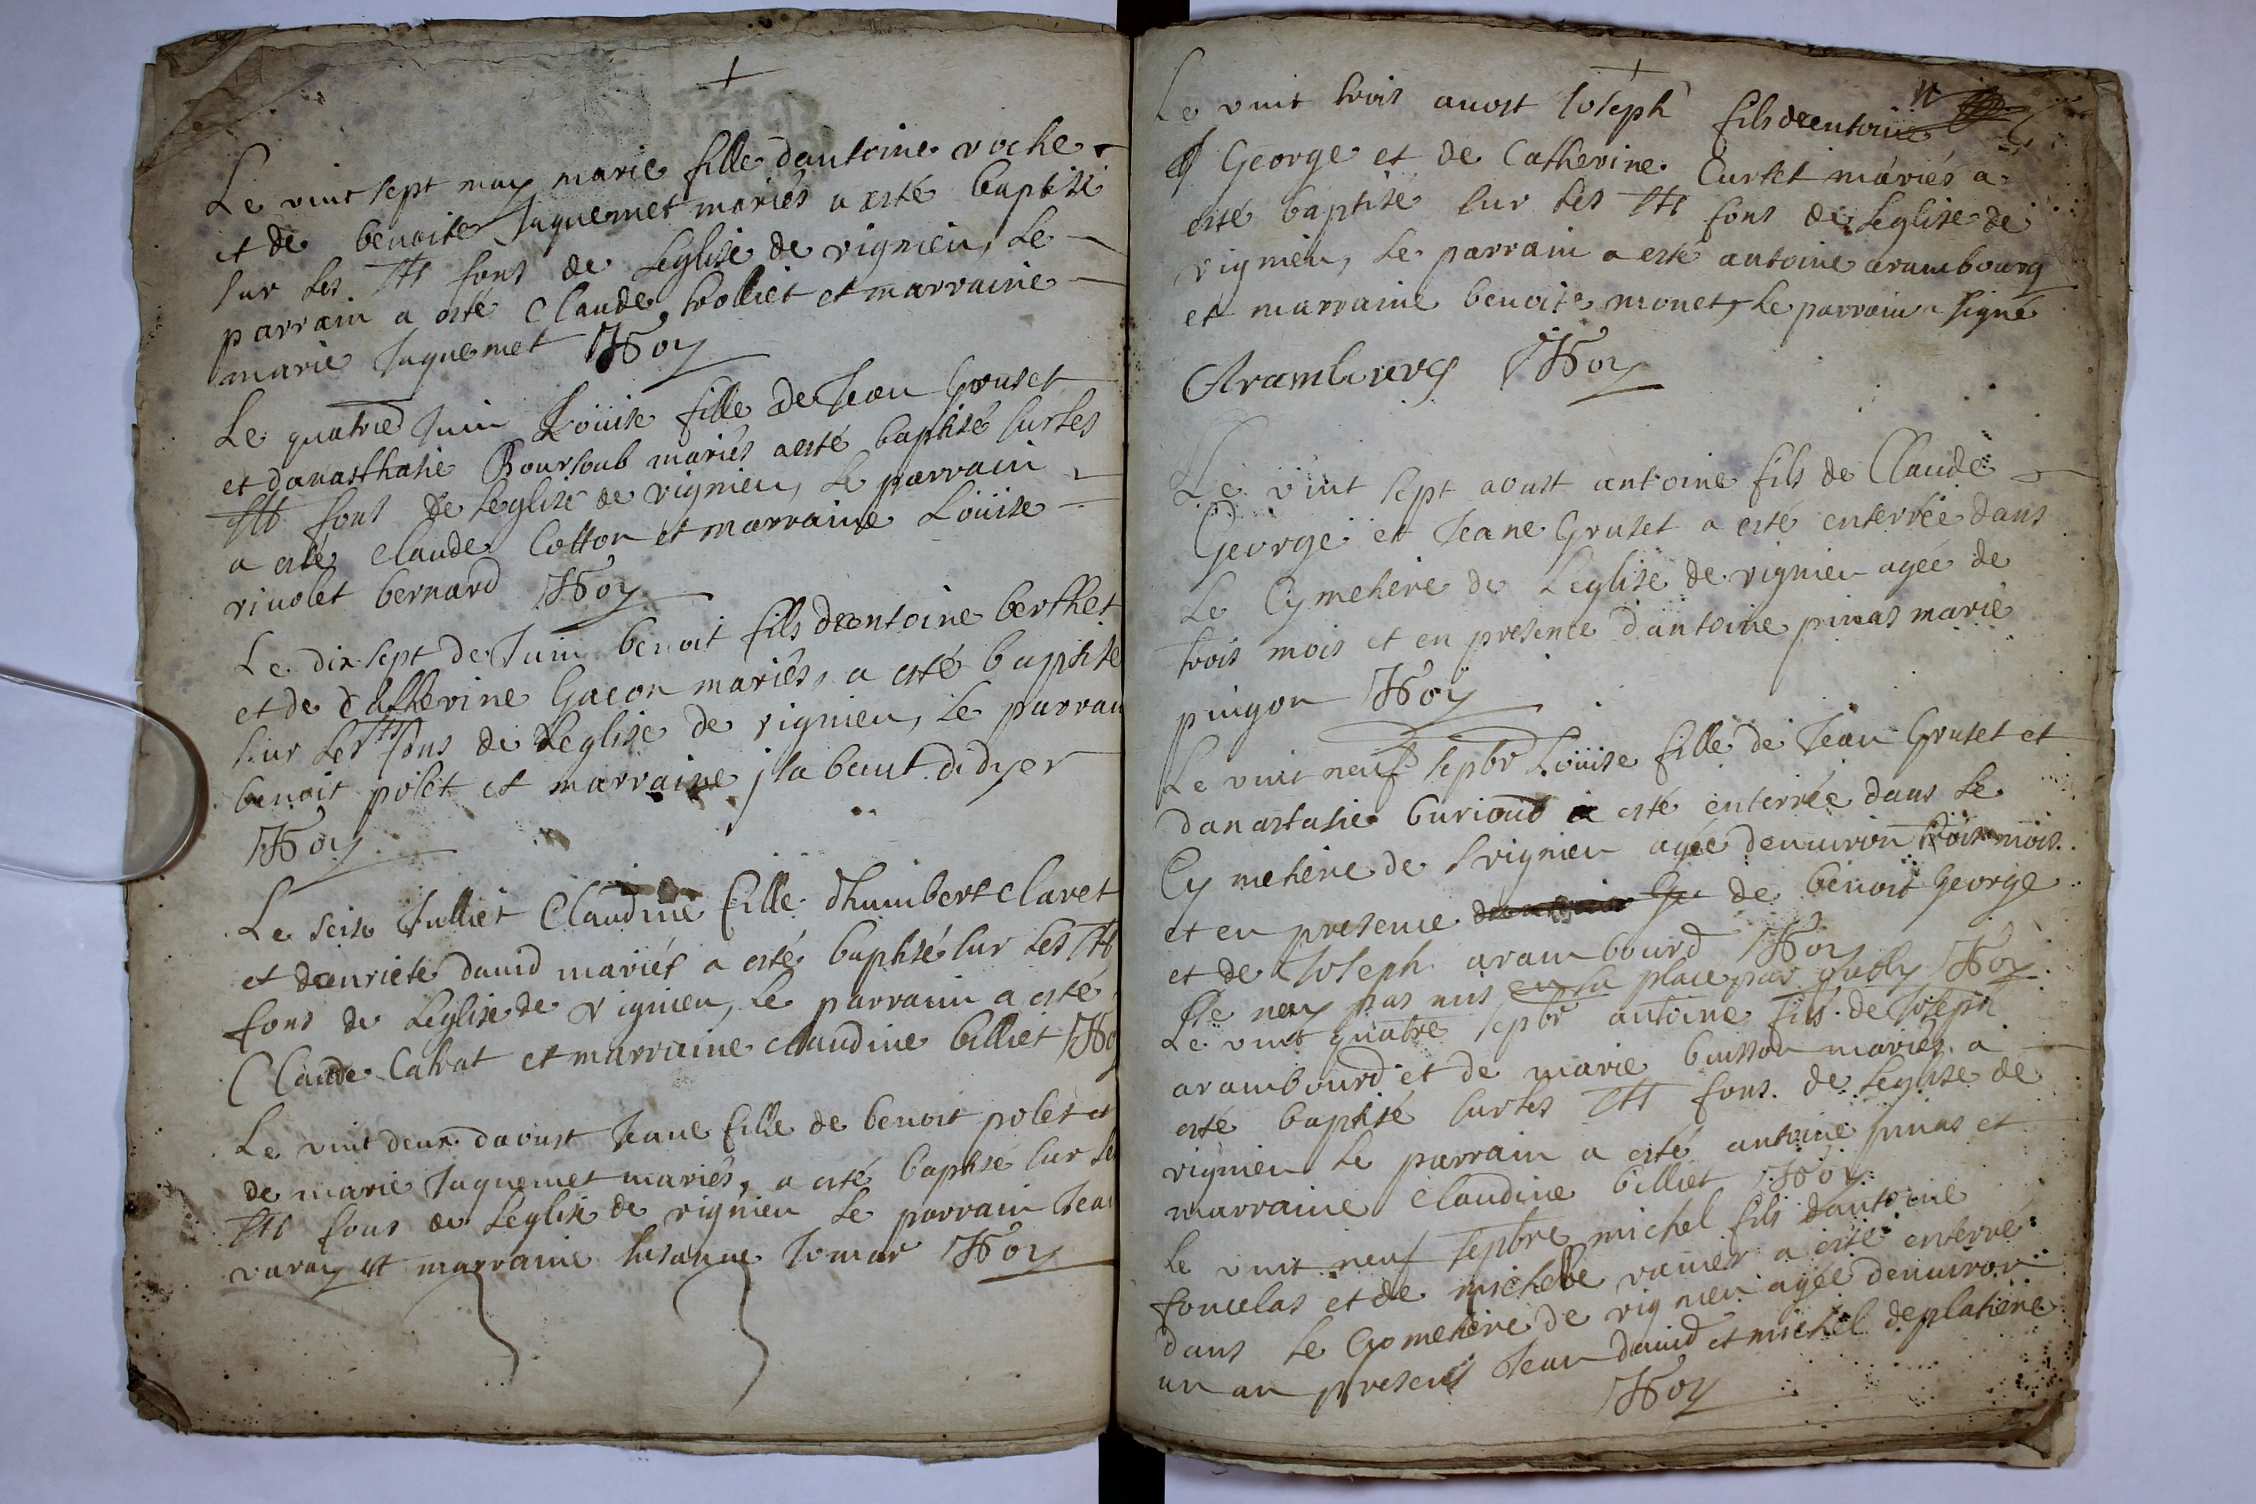 Le vint sept may marie fille dantoine roche
et de benoite Juquemet mariés a esté baptisé
sur les Sts fons de Leglise de vignieu, Le
parrain a esté Claude trolliet et marraine
marie Juquemet Roy
Le quatred Juin Louise fille de Jean Gruset
et danasthasie Boursoub mariés a esté baptisé sur les
Sts fons de Leglise de vignieu, Le parrain
a esté claude Cotton et marraine Louise
rivolet bernard Roy
Le dix sept de Juin benoit fils dantoine berthet
et de Catherine Gacon mariés, a esté baptisé
sur les sts fons de Leglise de vignieu, Le parrain
benoit polet et marraine ysabeaut didyer
Roy
Le seise Julliet Claudine fille dhumbert claret
et denriete david mariés a esté baptisé sur les Sts
fons de Leglise de vignieu, Le parrain a esté
Claude Catrat et marraine claudine billiet Roy
Le vint deux daoust Jeane fille de benoit polet et
de marie Juquemet mariés, a esté baptisé sur les
Sts fons de Leglise de vignieu Le parrain Jean
varay et marraine susanne Jomar Roy
Le vint trois aoust Joseph fils dantoine
George et de Catherine Curtet mariés a
esté baptisé sur les Sts fons de Leglise de
vignieu, Le parrain a esté antoine arambourg
et marraine benoite monet, Le parrain a signé
Arambourg Roy
Le vint sept aoust antoine fils de Claude
George et Jeane Gruset a esté enterrée dans
Le Cymetiere de Leglise de vignieu agée de
trois mois et en presence dantoine pinas marie
pingon Roy
Le vint neuf sepbr Louise fille de Jean Gruset et
danastasie burioud a esté enterrée dans Le
Cymetiere de vignieu agée denuiron trois mois
et en presence de benoit George
et de Joseph arambourd Roy
Je nay pas mis en sa place par oubly Roy
Le vint quatre sepbr antoine fils de Joseph
arambourd et de marie buisson mariés a
esté baptisé sur les Sts fons de Leglise de
vignieu Le parrain a esté antoine pinas et
marraine claudine billiet Roy
Le vint neuf sepbre michel fils dantoine
foncelas et de michelle vanier a esté enterré
dans Le Cymetiere de vignieu agée denuiron
un an presens Jean david et michel deplatiere
Roy